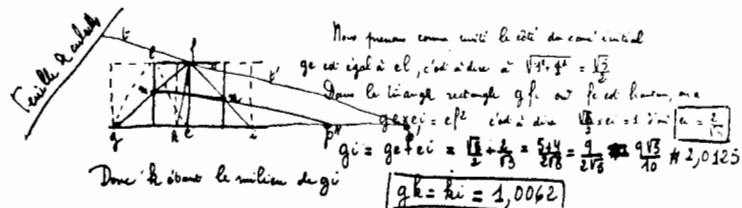 Feuille de calculs
Nous prenons comme unité le côté du carré initial
ge est égal à el, c'est à dire à √1²+ = √5/2
Dans le triangle rectangle gfi où fe est hauteur, on a
ge×ei = ef² c'est à dire √5/2 × ei = 1 d'où ei = 2/√5
gi = ge+ei = √5/2 + 2/√5 = 5+4/2√5 = 9/2√5 = 9√5/10 # 2,0125
Donc k étant le milieu de gi
gk = ki = 1,0062